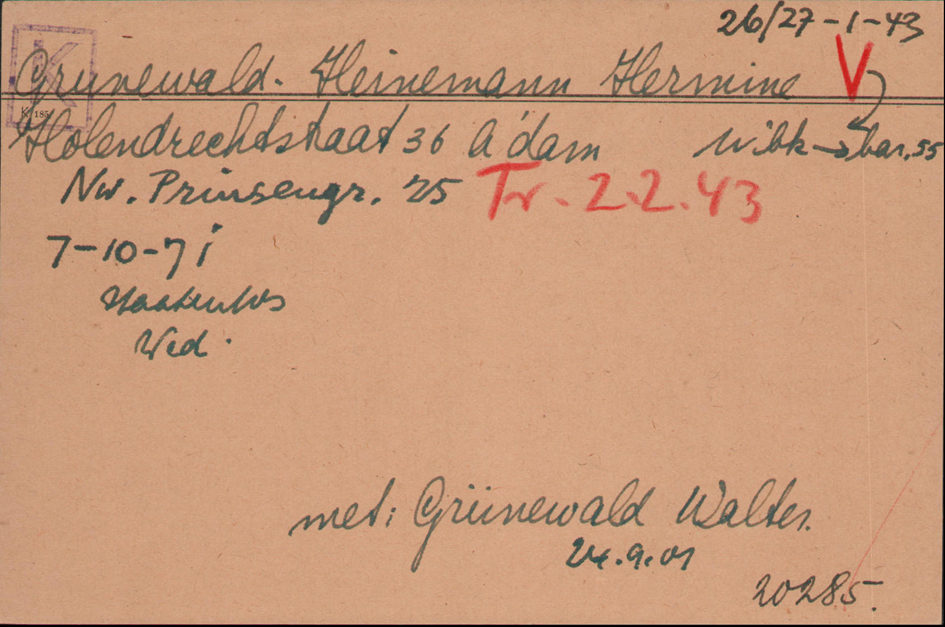 26/27-1-43
Grunewald - Heinemann Hermine V
K 185
Holendrechtstraat 36 A'dam W.bk → bar. 55
Nw. Prinsengr. 25 Tr. 2.2.43
7-10-71
Wed.
met: Grünewald Walter.
24.9.01
20285.